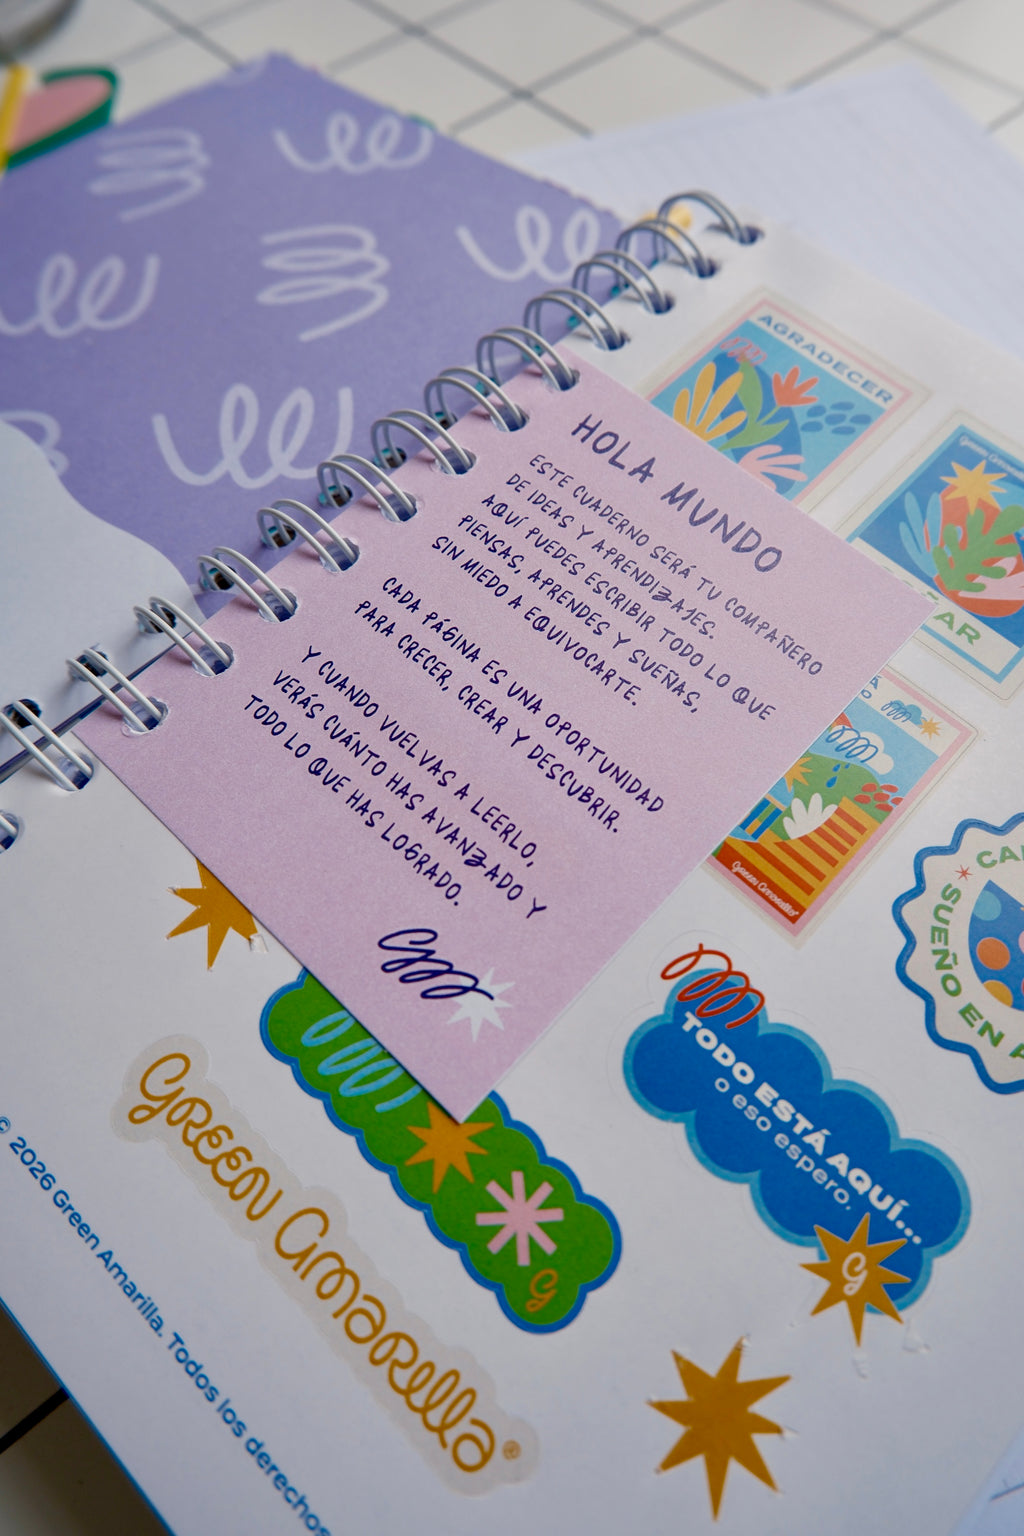 AGRADECER
Green Amarilla
AR
HOLA MUNDO
ESTE CUADERNO SERÁ TU COMPAÑERO
DE IDEAS Y APRENDIZAJES.
AQUÍ PUEDES ESCRIBIR TODO LO QUE
PIENSAS, APRENDES Y SUEÑAS,
SIN MIEDO A EQUIVOCARTE.
CADA PÁGINA ES UNA OPORTUNIDAD
PARA CRECER, CREAR Y DESCUBRIR.
Y CUANDO VUELVAS A LEERLO,
VERÁS CUÁNTO HAS AVANZADO Y
TODO LO QUE HAS LOGRADO.
Green Amarilla
SUEÑO EN
TODO ESTÁ AQUÍ...
o eso espero.
G
G
GREEN AMARILLA®
© 2026 Green Amarilla. Todos los derechos